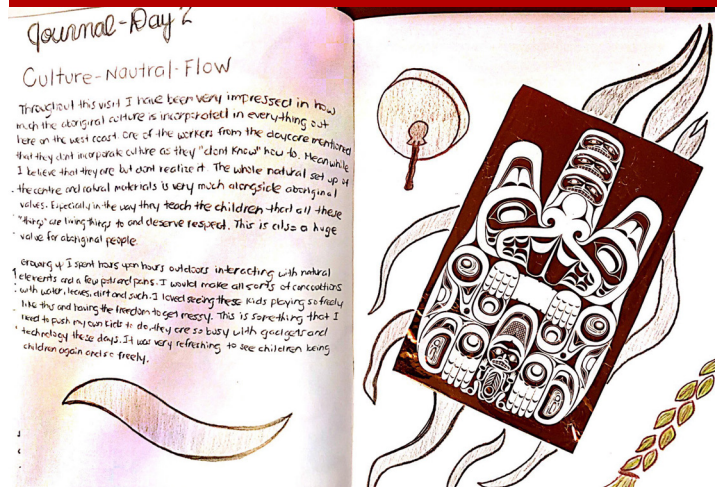 Journal-Day 2
Culture-Nautral-Flow
Throughout this visit I have been very impressed in how
much the aboriginal culture is incorporated in everything out
here on the west coast. One of the workers from the daycare mentioned
that they dont incorporate culture as they "dont know" how to. Meanwhile
I believe that they are but dont realize it. The whole natural set up of
the centre and natural materials is very much alongside aboriginal
values. Especially in the way they teach the children that all these
"things" are living things to and deserve respect. This is also a huge
value for aboriginal people.
Growing up I spent hours upon hours outdoors interacting with natural
elements and a few pots and pans. I would make all sorts of concoctions
with water, leaves, dirt and such. I loved seeing these kids playing so freely
like this and having the freedom to get messy. This is something that I
need to push my own kids to do, they are so busy with gadgets and
technology these days. It was very refreshing to see children being
children again and so freely.